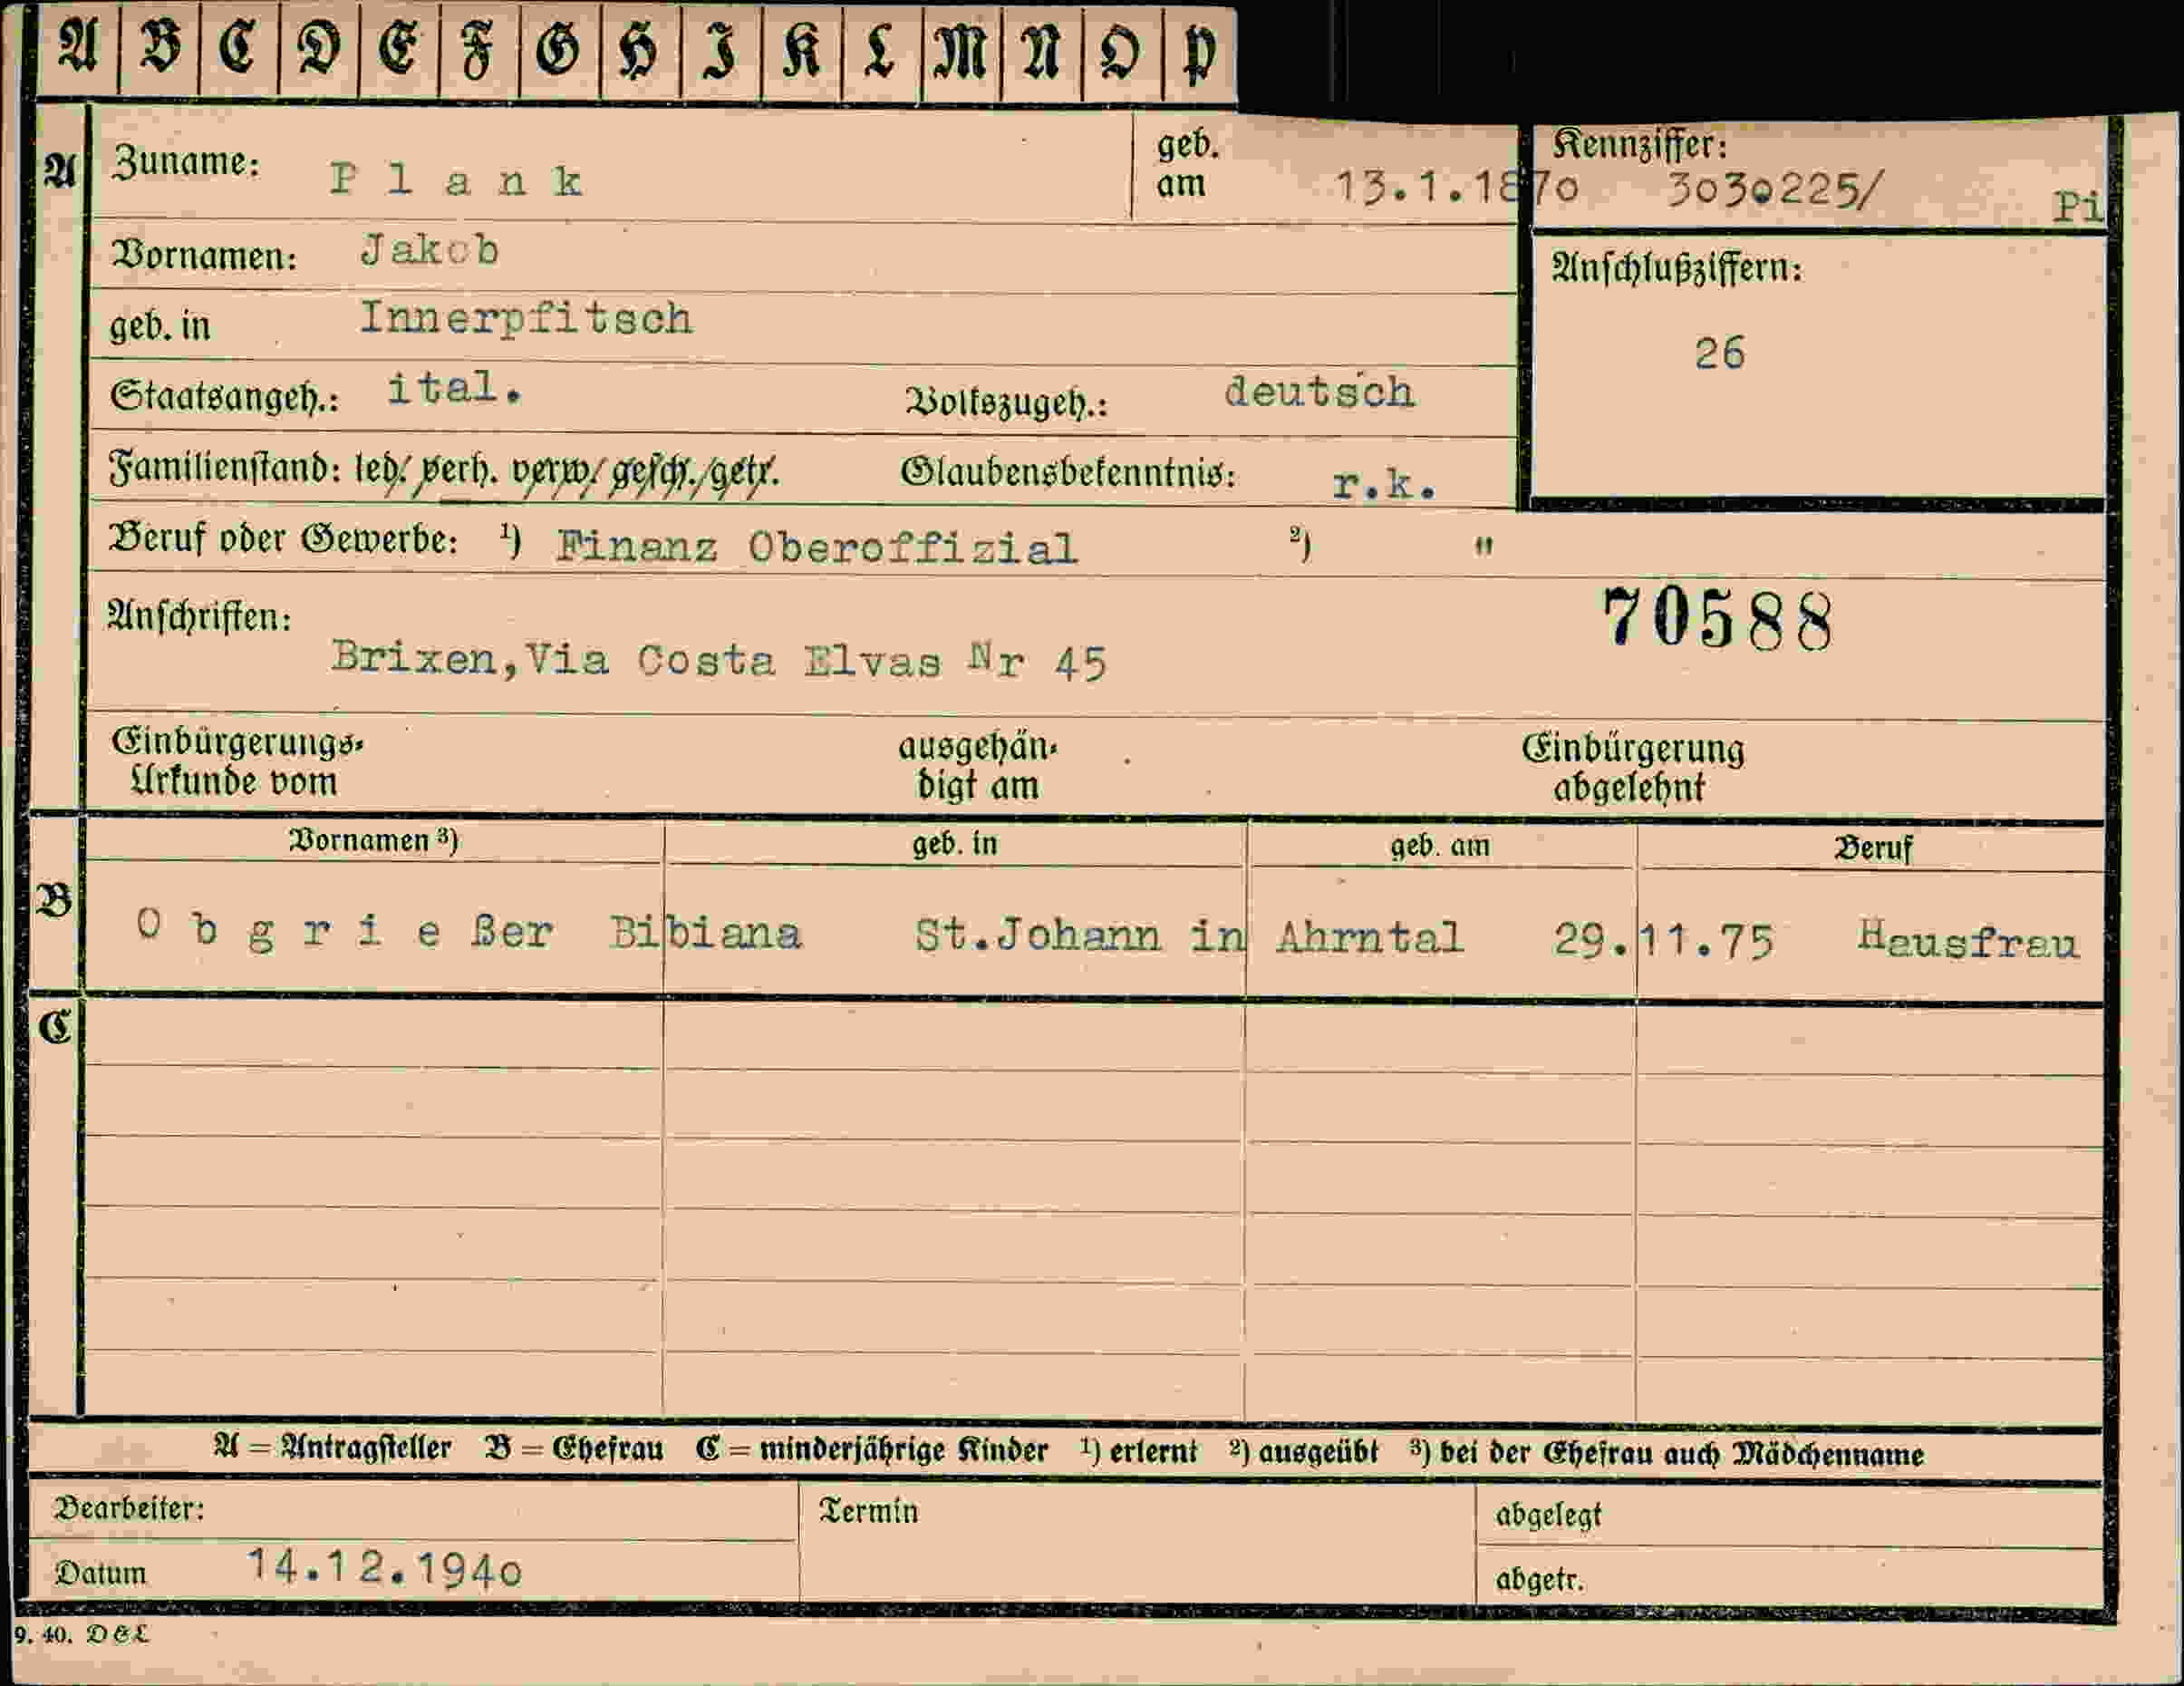 A B C D E F G H I K L M N O P
A Zuname: Plank geb. am 13.1.1870 Kennziffer: 3030225/ Pi
Vornamen: Jakob Anschlußziffern:
geb. in Innerpfitsch 26
Staatsangeh.: ital. Volkszugeh.: deutsch
Familienstand: led. verh. verw. gesch. getr. Glaubensbekenntnis: r.k.
Beruf oder Gewerbe: 1) Finanz Oberoffizial 2) "
Anschriften: 70588
Brixen, Via Costa Elvas Nr 45
Einbürgerungs- ausgehän- Einbürgerung
Urkunde vom digt am abgelehnt
Vornamen 3) geb. in geb. am Beruf
B Obgrießer Bibiana St.Johann in Ahrntal 29.11.75 Hausfrau
C
A = Antragsteller B = Ehefrau C = minderjährige Kinder 1) erlernt 2) ausgeübt 3) bei der Ehefrau auch Mädchenname
Bearbeiter: Termin abgelegt
Datum 14.12.1940 abgetr.
9. 40. D&L